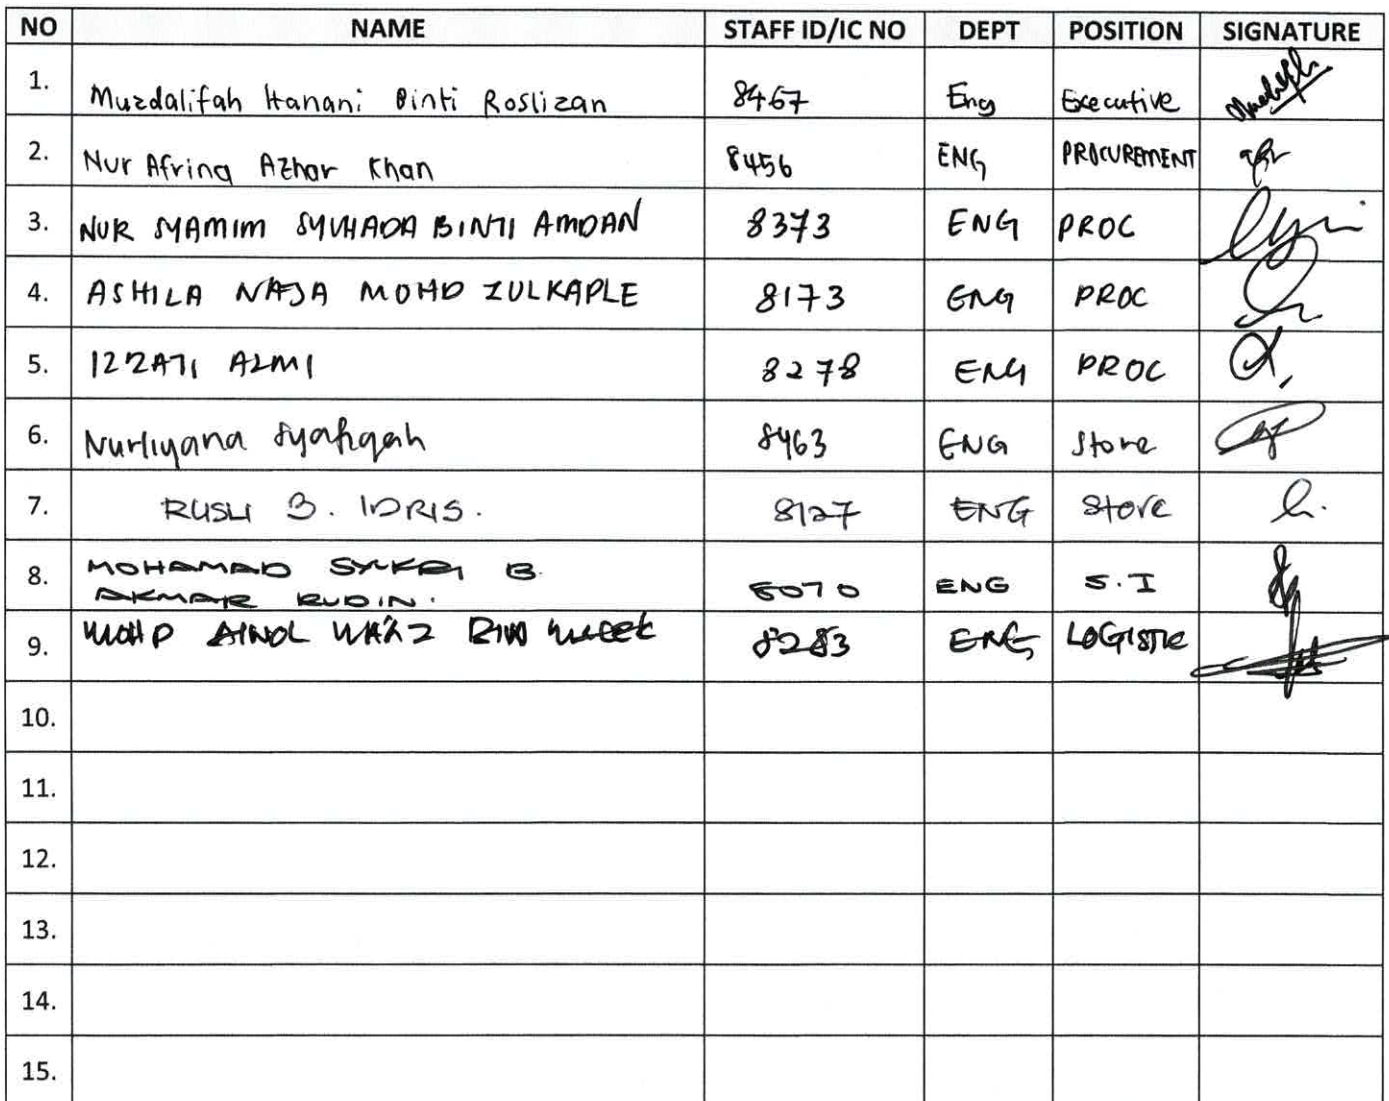 NO NAME STAFF ID/IC NO DEPT POSITION SIGNATURE
1. Muzdalifah Hanani Binti Roslizan 8467 Eng Executive
2. Nur Afrina Azhar Khan 8456 ENG PROCUREMENT
3. NUR SYAMIM SYUHADA BINTI AMDAN 8373 ENG PROC
4. ASHILA NAJA MOHD ZULKAPLE 8173 ENG PROC
5. IZZATI AZMI 8278 ENG PROC
6. Nurliyana Syafiqah 8463 ENG Store
7. RUSLI B. IDRIS. 8127 ENG Store
8. MOHAMAD SYUKRI B.
AKMAR RUDIN. 8070 ENG S.I
9. MOHD AINOL 8283 ENG LOGISTIC
10.
11.
12.
13.
14.
15.